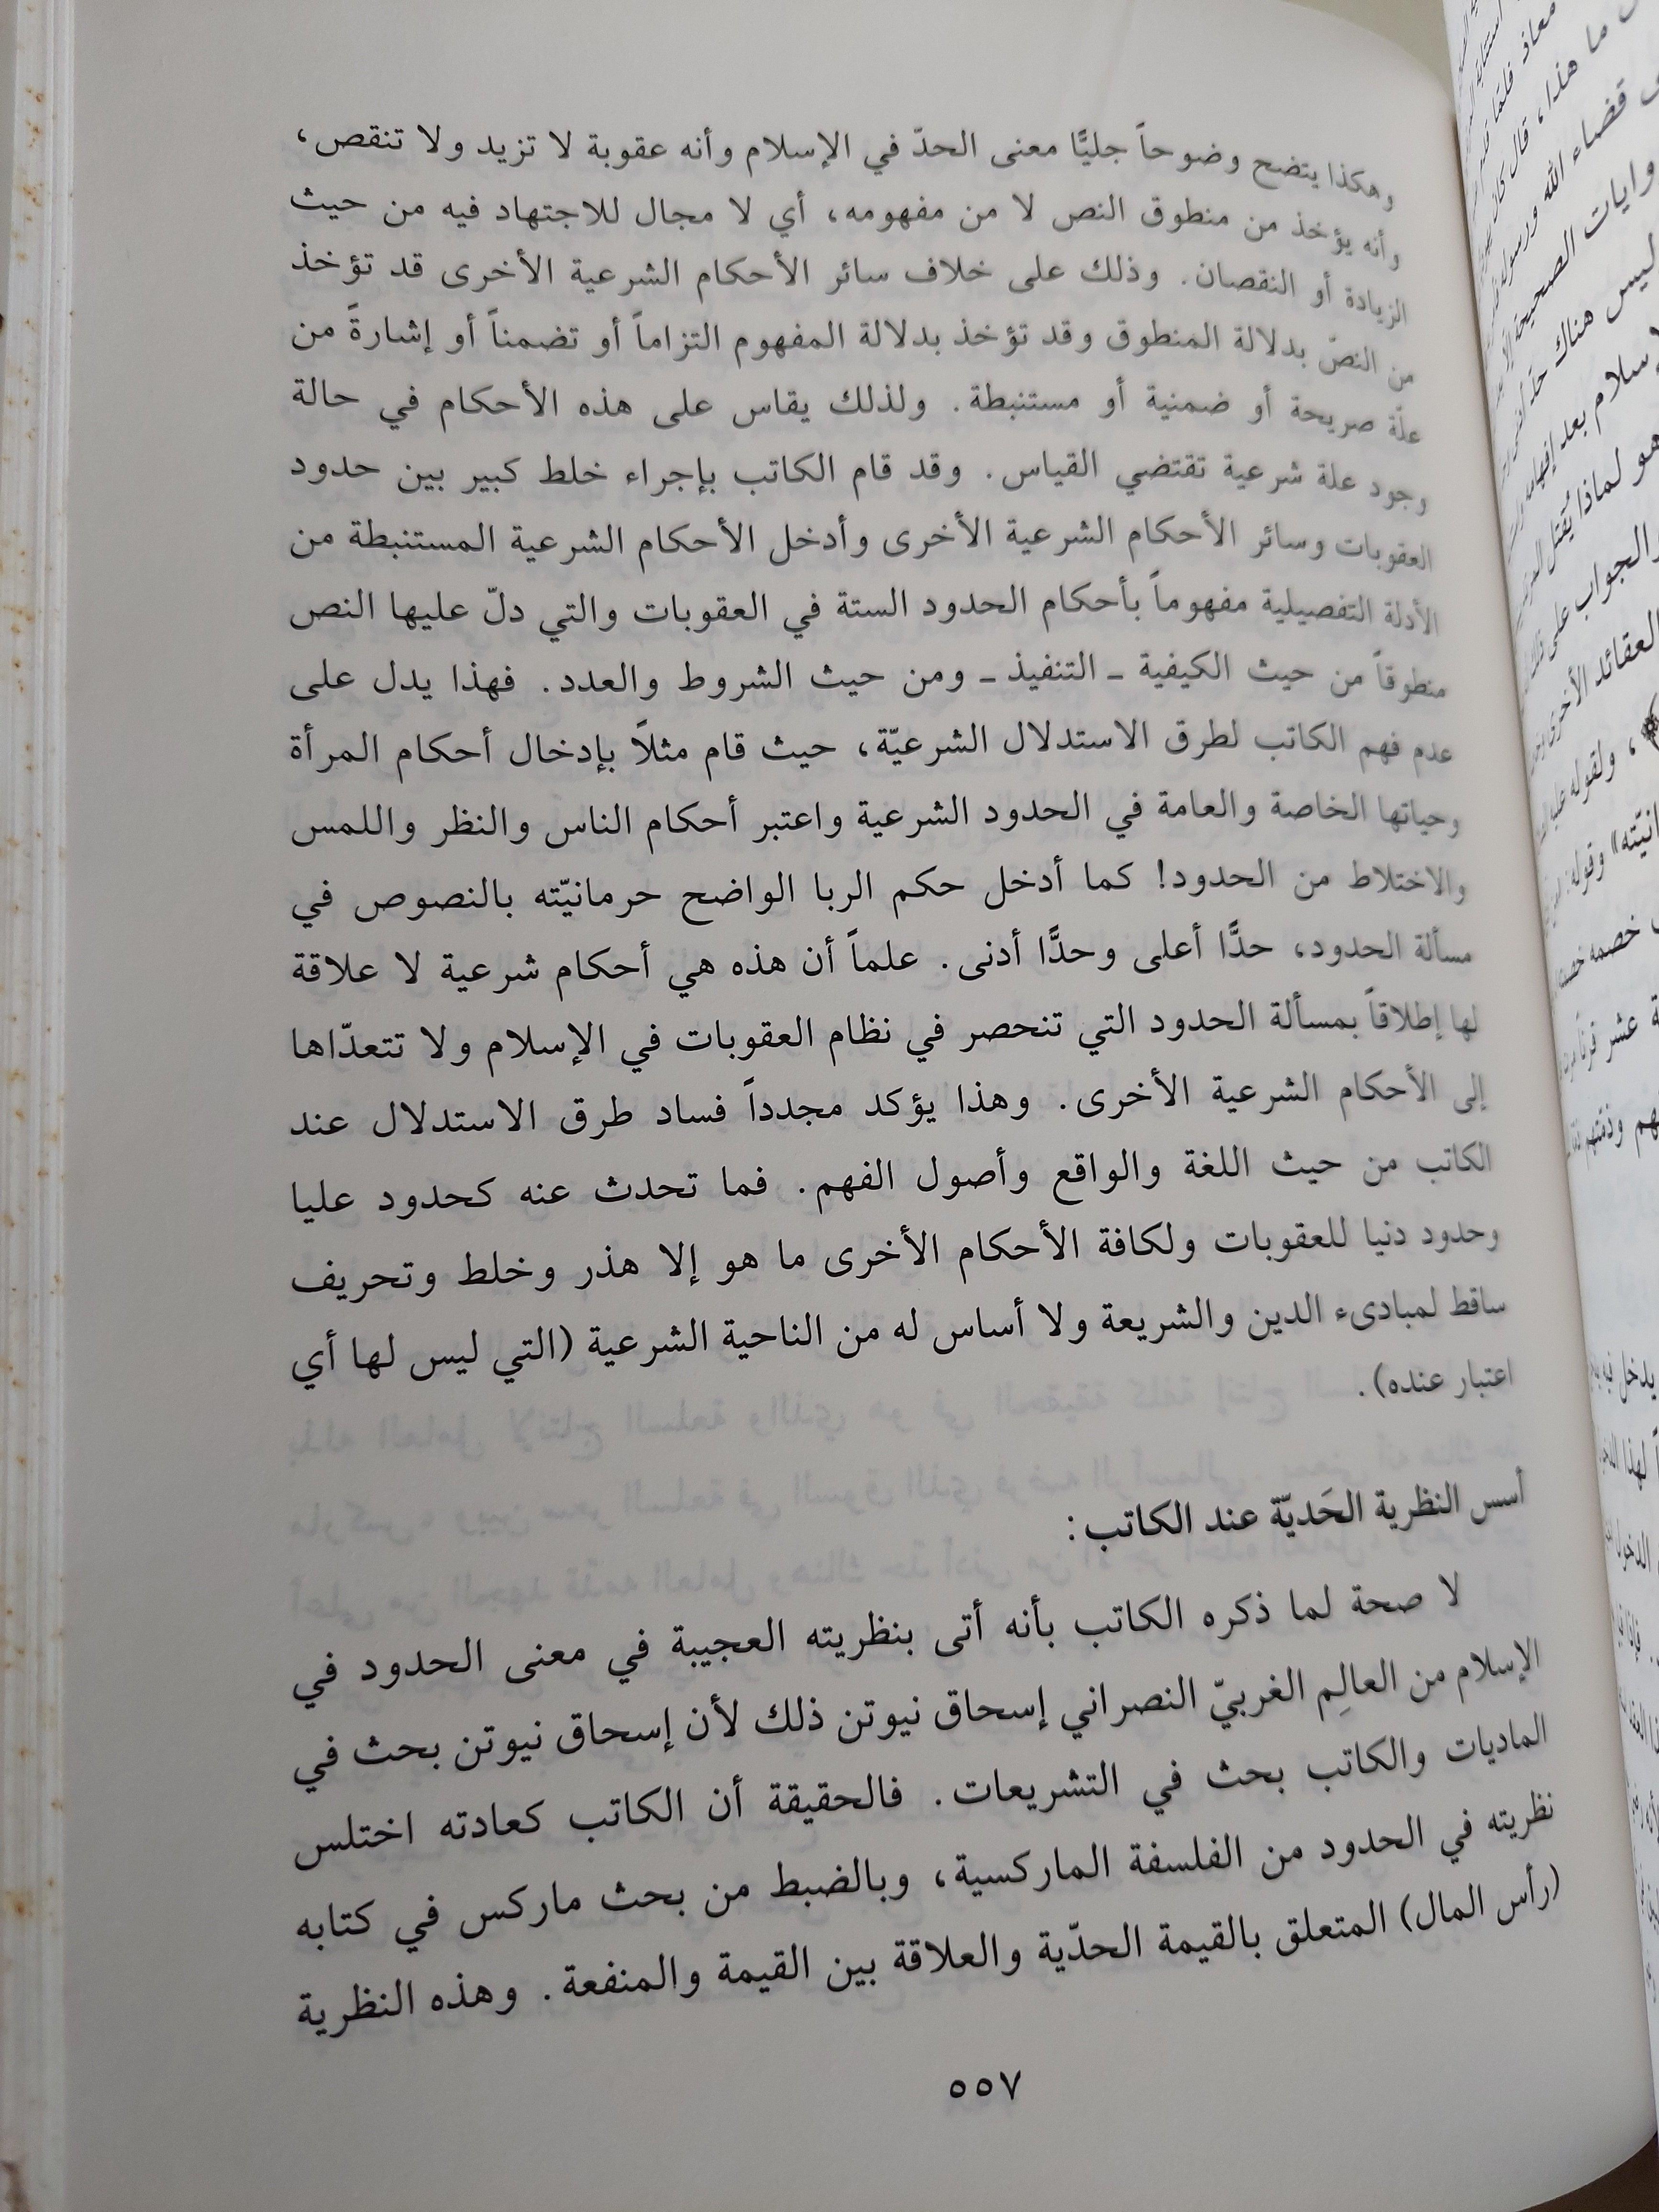 وهكذا يتضح وضوحاً جليًّا معنى الحدّ في الإسلام وأنه عقوبة لا تزيد ولا تنقص،
وأنه يؤخذ من منطوق النص لا من مفهومه، أي لا مجال للاجتهاد فيه من حيث
الزيادة أو النقصان. وذلك على خلاف سائر الأحكام الشرعية الأخرى قد تؤخذ
من النصّ بدلالة المنطوق وقد تؤخذ بدلالة المفهوم التزاماً أو تضمناً أو إشارةً من
علّة صريحة أو ضمنية أو مستنبطة. ولذلك يقاس على هذه الأحكام في حالة
وجود علة شرعية تقتضي القياس. وقد قام الكاتب بإجراء خلط كبير بين حدود
العقوبات وسائر الأحكام الشرعية الأخرى وأدخل الأحكام الشرعية المستنبطة من
الأدلة التفصيلية مفهوماً بأحكام الحدود الستة في العقوبات والتي دلّ عليها النص
منطوقاً من حيث الكيفية ـ التنفيذ ـ ومن حيث الشروط والعدد. فهذا يدل على
عدم فهم الكاتب لطرق الاستدلال الشرعيّة، حيث قام مثلاً بإدخال أحكام المرأة
وحياتها الخاصة والعامة في الحدود الشرعية واعتبر أحكام الناس والنظر واللمس
والاختلاط من الحدود! كما أدخل حكم الربا الواضح حرمانيّته بالنصوص في
مسألة الحدود، حدًّا أعلى وحدًّا أدنى. علماً أن هذه هي أحكام شرعية لا علاقة
لها إطلاقاً بمسألة الحدود التي تنحصر في نظام العقوبات في الإسلام ولا تتعدّاها
إلى الأحكام الشرعية الأخرى. وهذا يؤكد مجدداً فساد طرق الاستدلال عند
الكاتب من حيث اللغة والواقع وأصول الفهم. فما تحدث عنه كحدود عليا
وحدود دنيا للعقوبات ولكافة الأحكام الأخرى ما هو إلا هذر وخلط وتحريف
ساقط لمبادىء الدين والشريعة ولا أساس له من الناحية الشرعية (التي ليس لها أي
اعتبار عنده).
أسس النظرية الحَديّة عند الكاتب:
لا صحة لما ذكره الكاتب بأنه أتى بنظريته العجيبة في معنى الحدود في
الإسلام من العالِم الغربيّ النصراني إسحاق نيوتن ذلك لأن إسحاق نيوتن بحث في
الماديات والكاتب بحث في التشريعات. فالحقيقة أن الكاتب كعادته اختلس
نظريته في الحدود من الفلسفة الماركسية، وبالضبط من بحث ماركس في كتابه
(رأس المال) المتعلق بالقيمة الحدّية والعلاقة بين القيمة والمنفعة. وهذه النظرية
٥٥٧